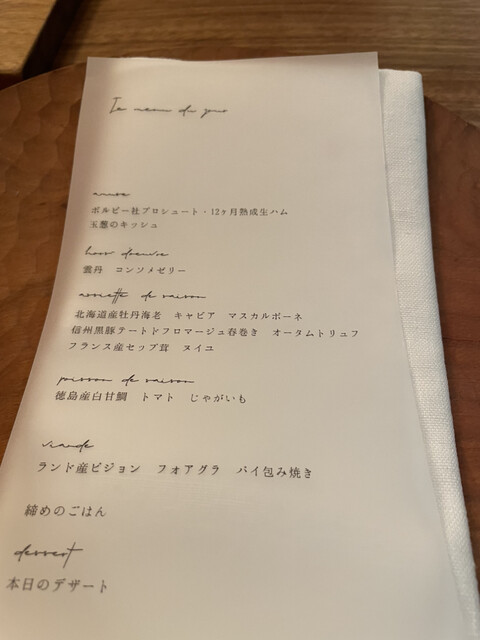 Le menu du jour
amuse
ボルピー社プロシュート・12ヶ月熟成生ハム
玉葱のキッシュ
hors d'oeuvre
雲丹 コンソメゼリー
assiette de saison
北海道産牡丹海老 キャビア マスカルポーネ
信州黒豚テートドフロマージュ春巻き オータムトリュフ
フランス産セップ茸 ヌイユ
poisson de saison
徳島産白甘鯛 トマト じゃがいも
viande
ランド産ピジョン フォアグラ パイ包み焼き
締めのごはん
dessert
本日のデザート